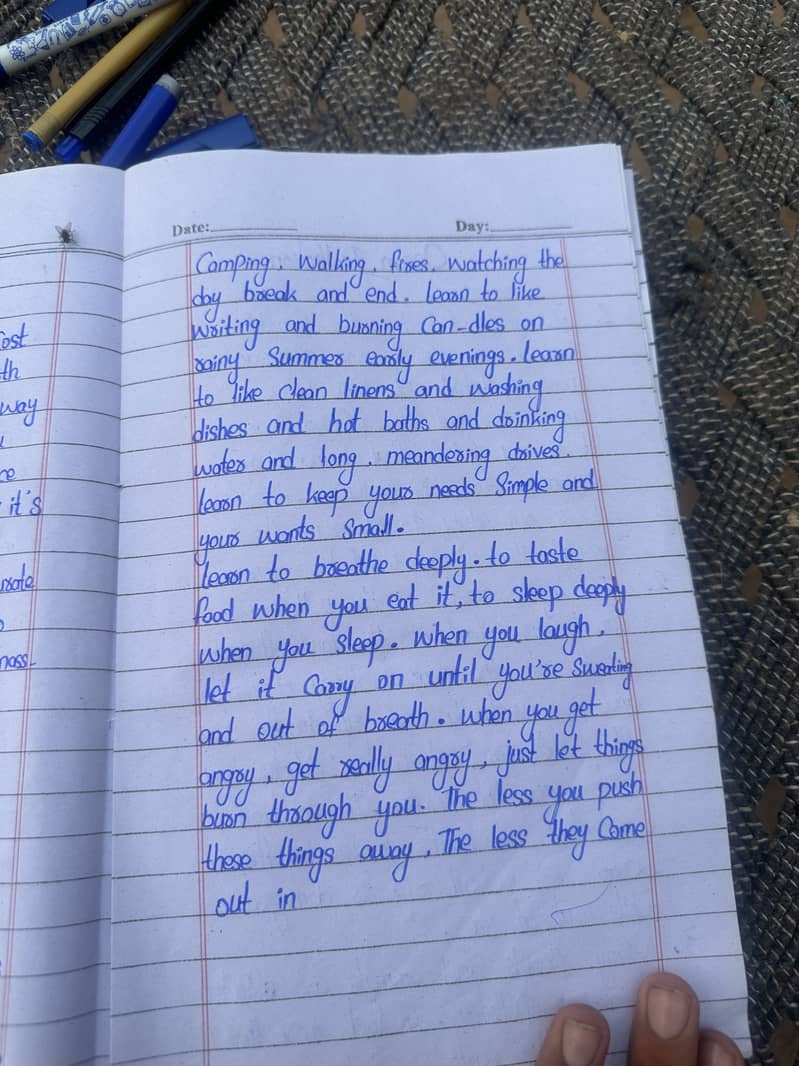 Date:
Day:
Camping, Walking, fires, watching the
day break and end. learn to like
writing and burning Can-dles on
rainy Summer early evenings. learn
to like clean linens and washing
dishes and hot baths and drinking
water and long, meandering drives.
learn to keep your needs Simple and
your wants Small.
learn to breathe deeply. to taste
food when you eat it, to sleep deeply
when you sleep. when you laugh,
let it Carry on until you're Sweating
and out of breath. when you get
angry, get really angry, just let things
burn through you. The less you push
these things away, The less they Come
out in
ost
th
way
it's